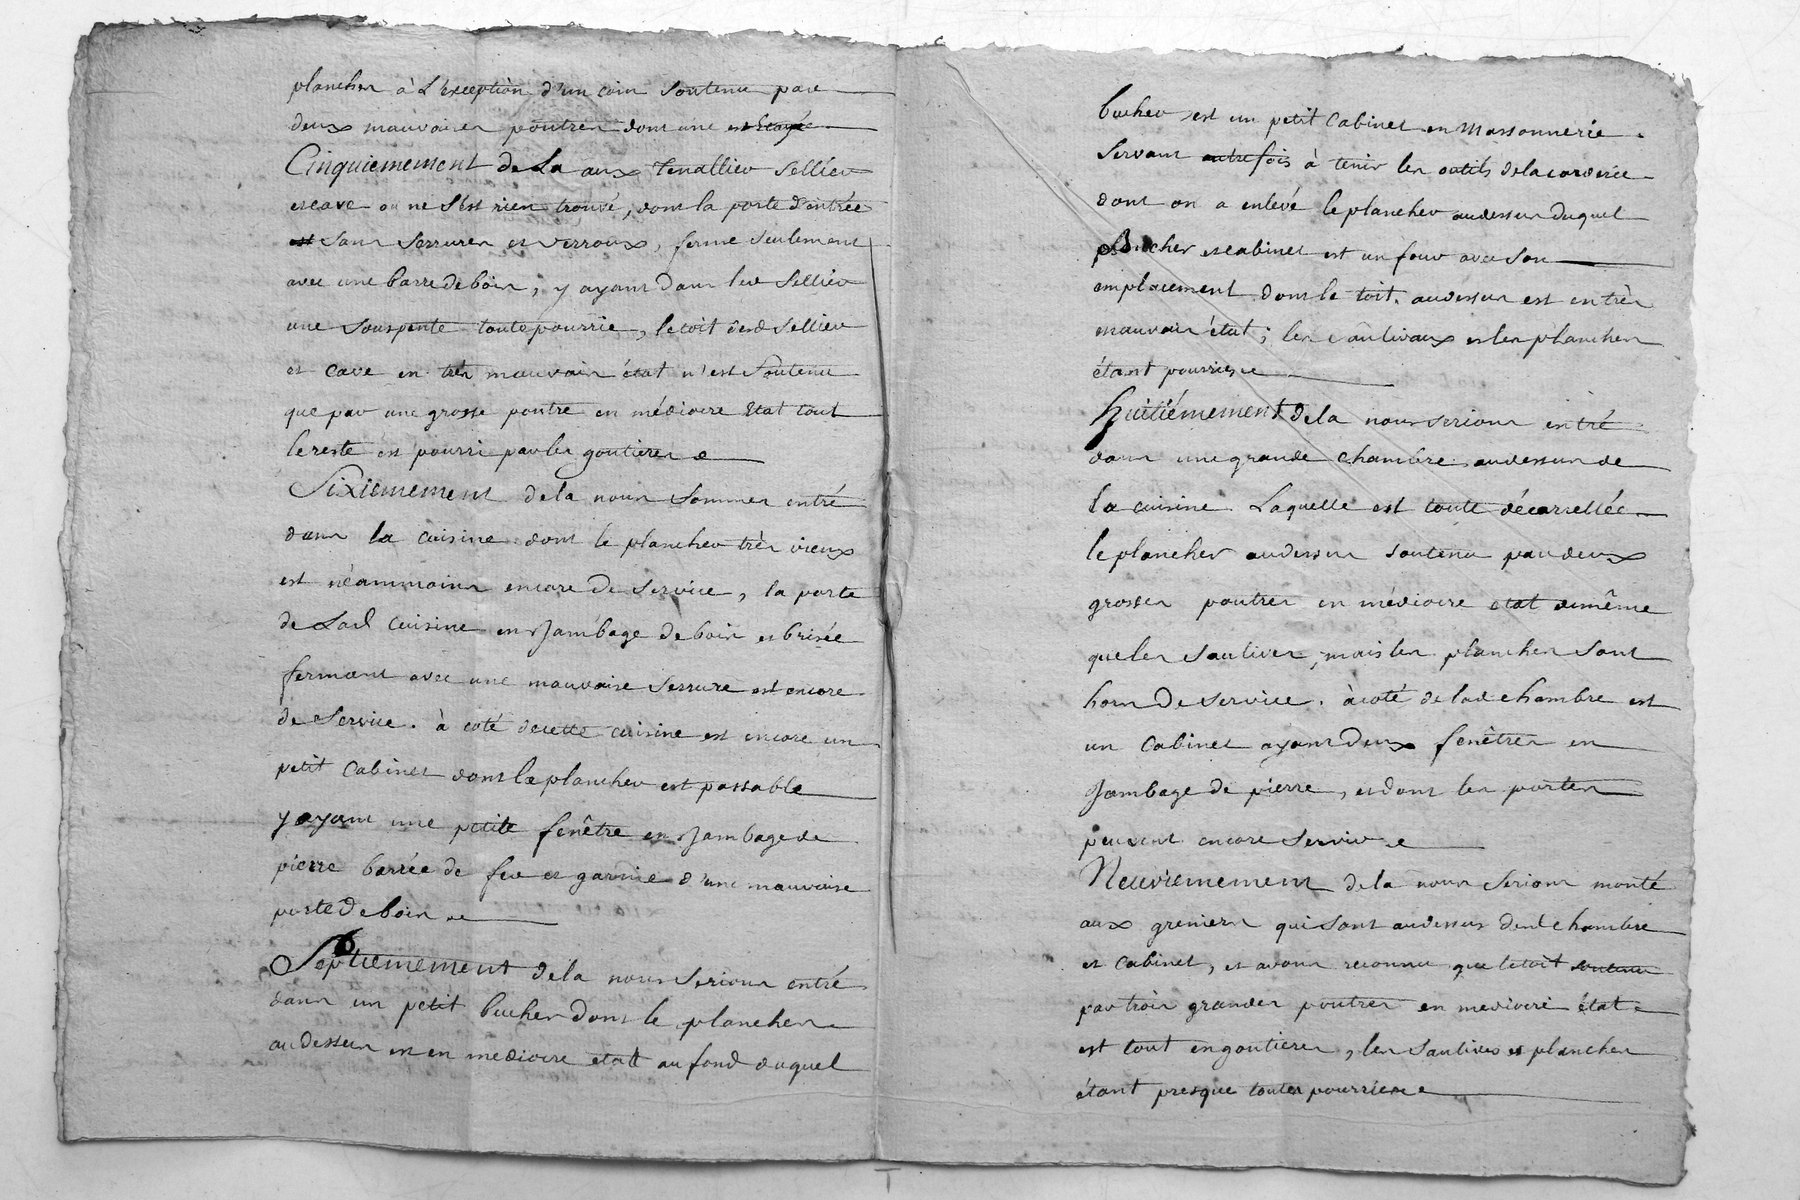 plancher à L'exception d'un coin soutenu par
deux mauvaises poutres dont une est Etayé
Cinquiemement de La aux Tenallier Sellier
et cave ou ne s'est rien trouvé, dont la porte d'entrée
est sans serrures et verroux, ferme seulement
avec une barre de bois; y ayant dans led Sellier
une souspente toute pourrie, le toit desd Sellier
et cave en très mauvais état n'est soutenu
que par une grosse poutre en médiocre Etat tout
le reste est pourri par les goutieres
Sixiemement de la nous sommes entré
dans la cuisine dont le plancher très vieux
est néammoins encore de service, la porte
de Lad cuisine en Jambage de bois et brisée
fermant avec une mauvaise serrure est encore
de service. à coté de cette cuisine est encore un
petit cabinet dont le plancher est passable
y ayant une petite fenêtre en Jambage de
pierre barrée de fer et garnie d'une mauvaise
porte de bois
Septiemement de la nous serions entré
dans un petit bucher dont le plancher
au dessus est en mediocre etatt au fond duquel
bucher est un petit Cabinet en Massonnerie
servant autrefois à tenir les outils de la corderie
dont on a enlévé le plancher au dessus duquel
Bucher et cabinet est un four avec son
emplacement dont le toit au dessus est en très
mauvais état; les sautivaux et les planches
étant pourries
Huitiémement de la nous serions entré
dans une grande chambre au dessus de
la cuisine Laquelle est toute décarellée
le plancher au dessus soutenu par deux
grosses poutres en médiocre etat de même
que les sautives, mais les planches sont
hors de service. à coté de lad chambre est
un Cabinet ayant deux fenêtres en
Jambage de pierre, et dont les portes
peuvent encore servir
Neuviemement de la nous serions monté
aux greniers qui sont au dessus desd chambre
et cabinet, et avons reconnu que le toit soutenu
par trois grandes poutres en mediocre état
est tout en goutieres, les sautives et planches
étant presque toutes pourries